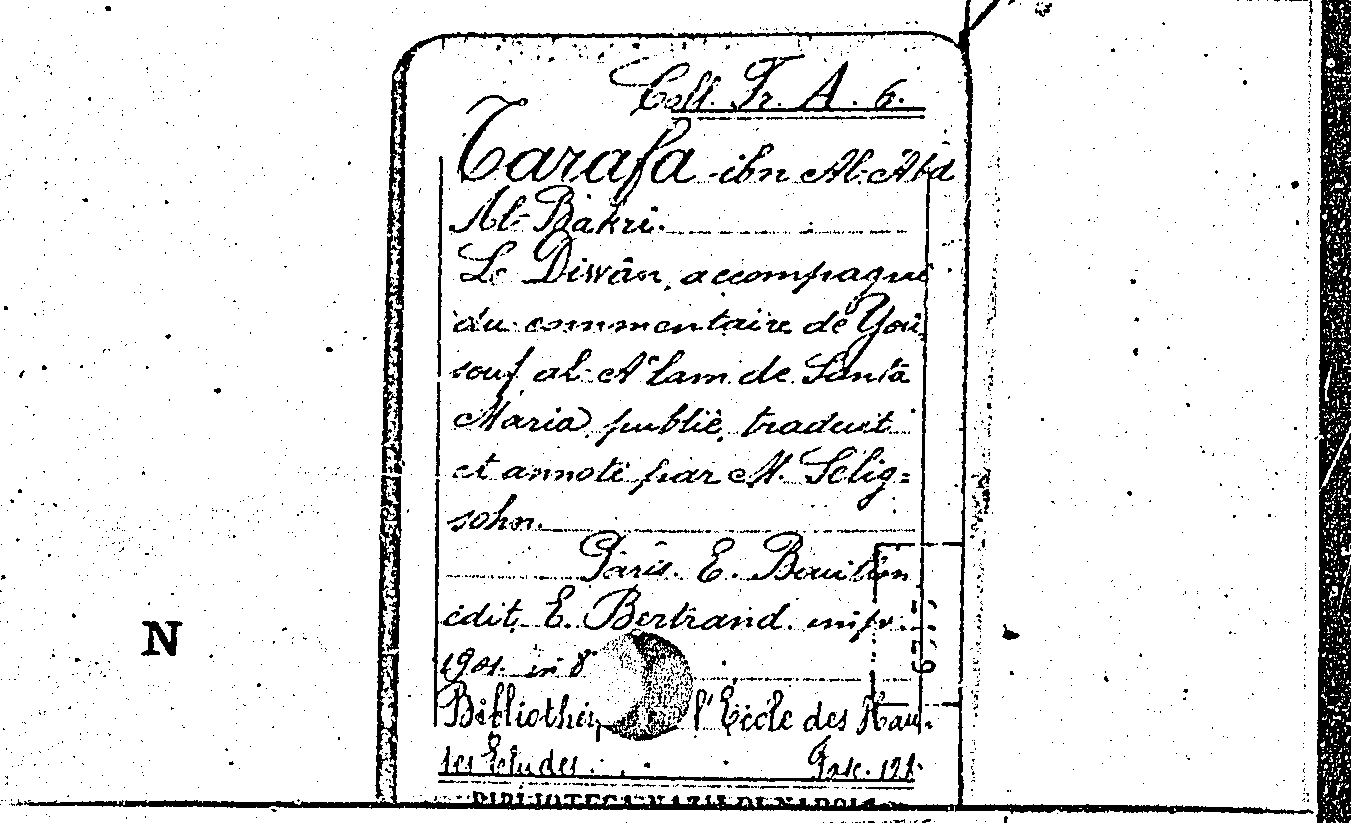 Coll. Fr. A. 6.
Tarafa ibn Al-Abd
Al-Bakri.
Le Diwân, accompagné
du commentaire de You
souf al-A'lam de Santa
Maria, publié, traduit
et annoté par M. Selig=
sohn.
Paris. E. Bouillon
édit. E. Bertrand impr.
1901. in 8°
l'École des Hau-
tes Études. Fasc. 121.
BIBLIOTECA NAZ. DI NAPOLI
N